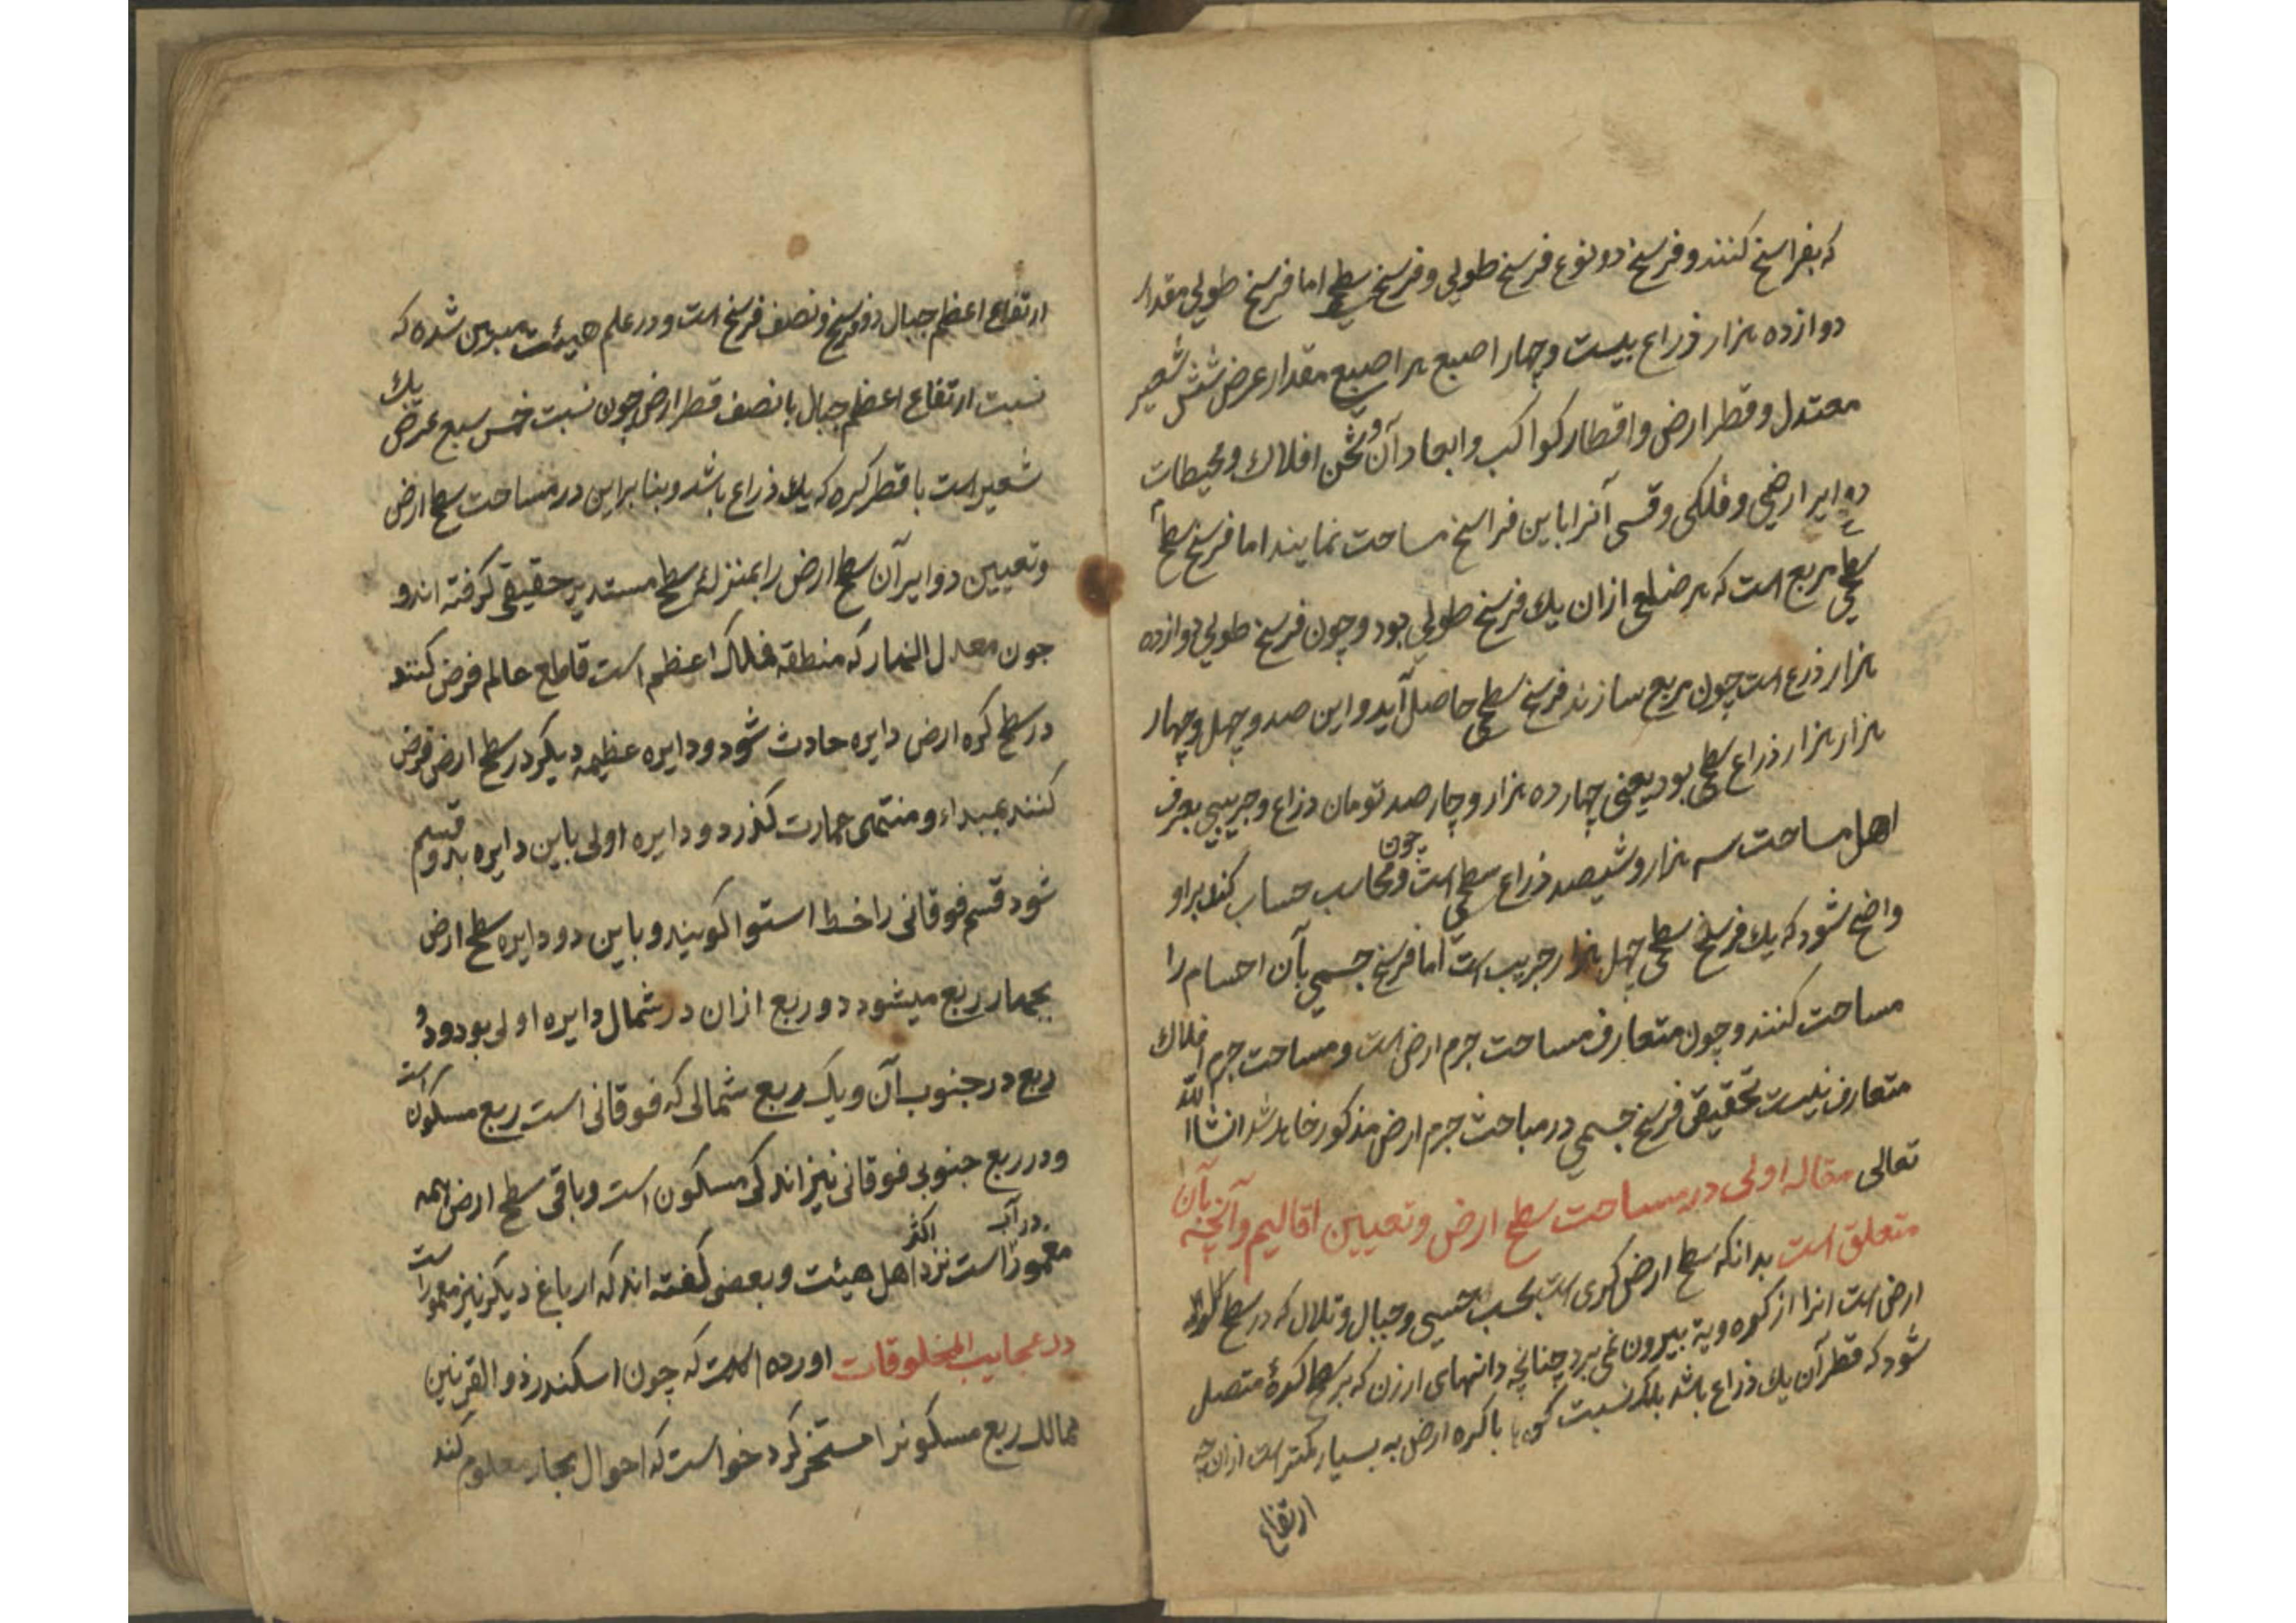 که بفراسخ کنند و فرسخ دو نوع فرسخ طولی و فرسخ سطحی اما فرسخ طولی مقدار
دوازده هزار ذراع بیست و چهار اصبع هر اصبع مقدار عرض شش شعیر
معتدل و قطر ارض و اقطار کواکب و ابعاد آن و ثخن افلاک و محیطات
دوایر ارضی و فلکی و قسی آنرا باین فراسخ مساحت نمایند اما فرسخ سطحی
سطحی مربع است که هر ضلعی ازان یک فرسخ طولی بود و چون فرسخ طولی دوازده
هزار ذرع است چون مربع سازند فرسخ سطحی حاصل آید و این صد و چهل و چهار
هزار هزار ذراع سطحی بود یعنی چهارده هزار و چارصد تومان ذراع و جریبی بعرف
اهل مساحت سه هزار و شیصد ذراع سطحی است و چون محاسب حساب کند براو
واضح شود که یک فرسخ سطحی چهل هزار جریب است اما فرسخ جسمی بآن اجسام را
مساحت کنند و چون متعارف مساحت جرم ارض است و مساحت جرم افلاک
متعارف نیست تحقیق فرسخ جسمی در مباحث جرم ارض مذکور خاهد شد انشاا الله
تعالی مقاله اولی در مساحت سطح ارض و تعیین اقالیم و آنچه بآن
متعلق است بدانکه سطح ارض کری است بحسب حسی و جبال و تلال که در سطح کره
ارض است انرا از کرویة بیرون نمی برد چنانچه دانهای ارزن که بر سطح کرهٔ متصل
شود که قطر آن یک ذراع باشد بلکه نسبت کوه با کره ارض به بسیار کمتر است ازان چه
ارتفاع
ارتفاع اعظم جبال دو فرسخ و نصف فرسخ است و در علم هیئت مبرهن شده که
نسبت ارتفاع اعظم جبال با نصف قطر ارض چون نسبت خمس سبع عرض یک
شعیر است با قطر کره که یک ذراع باشد و بنا براین در مساحت سطح ارض
و تعیین دوایر آن سطح ارض را بمنزلهٔ سطح مستدیر حقیقی کرفته اند و
جون معدل النهار که منطقه فلک اعظم است قاطع عالم فرض کنند
در سطح کره ارض دایره حادث شود و دایره عظیمه دیکر در سطح ارض فرض
کنند بمبداء و منتهی عمارت کذرد و دایره اولی باین دایره بدو قسم
شود قسم فوقانی را خط استوا کویند و باین دو دایره سطح ارض
بچهار ربع میشود دو ربع ازان در شمال دایره اولی بود و دو
ربع در جنوب آن و یک ربع شمالی که فوقانی است ربع مسکون است
و در ربع جنوبی فوقانی نیز اندکی مسکون است و باقی سطح ارض همه
مغمور در آب است نزد اکثر اهل هیئت و بعضی کفته اند که ارباع دیکر نیز معمور است
در عجایب المخلوقات اورده است که چون اسکندر ذو القرنین
ممالک ربع مسکونرا مستخر کرد خواست که احوال بحار معلوم کند